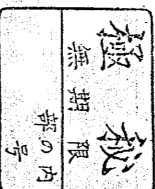 極秘
無期限
部の内
号